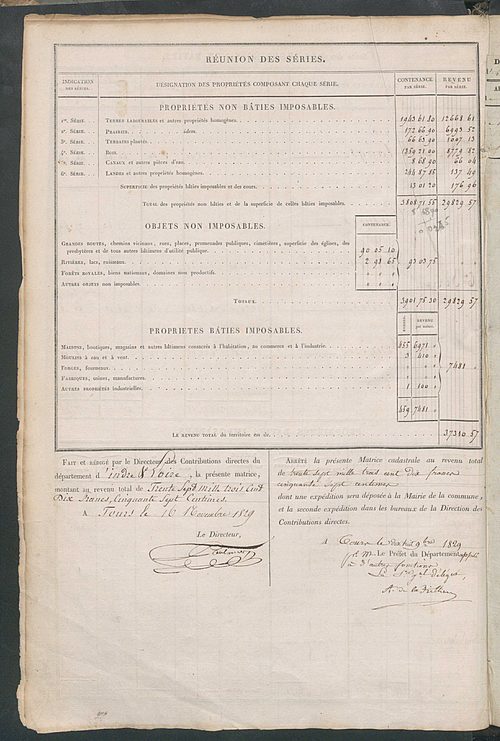 RÉUNION DES SÉRIES.
INDICATION DES SÉRIES. DÉSIGNATION DES PROPRIÉTÉS COMPOSANT CHAQUE SÉRIE. CONTENANCE PAR SÉRIE. REVENU PAR SÉRIE.
PROPRIÉTÉS NON BÂTIES IMPOSABLES.
1re. Série. TERRES LABOURABLES et autres propriétés homogènes. 1963 61 80 12668 61
2e. Série. PRAIRIES. idem. 172 66 90 6993 52
3e. Série. TERRAINS plantés. 66 63 90 1007 13
4e. Série. BOIS. 1350 21 00 8779 82
5e. Série. CANAUX et autres pièces d'eau. 8 68 90 66 04
6e. Série. LANDES et autres propriétés homogènes. 244 87 85 137 49
SUPERFICIE des propriétés bâties imposables et des cours. 13 01 20 176 96
TOTAL des propriétés non bâties et de la superficie de celles bâties imposables. 3808 71 55 29829 57
OBJETS NON IMPOSABLES.
CONTENANCE.
GRANDES ROUTES, chemins vicinaux, rues, places, promenades publiques, cimetières, superficie des églises, des
presbytères et de tous autres bâtimens d'utilité publique. 90 05 10
RIVIÈRES, lacs, ruisseaux. 2 98 65 93 03 75
FORÊTS ROYALES, biens nationaux, domaines non productifs.
AUTRES OBJETS non imposables.
TOTAUX. 3901 75 30 29829 57
PROPRIÉTÉS BÂTIES IMPOSABLES.
REVENU
MAISONS, boutiques, magasins et autres bâtimens consacrés à l'habitation, au commerce et à l'industrie. 655 6971
MOULINS à eau et à vent. 3 410
FORGES, fourneaux. 7481
FABRIQUES, usines, manufactures.
AUTRES PROPRIÉTÉS industrielles. 1 100
659 7481
LE REVENU TOTAL du territoire est de. 37310 57
FAIT et RÉDIGÉ par le Directeur des Contributions directes du
département d'Indre & Loire, la présente matrice,
montant au revenu total de Trente Sept Mille trois Cent
Dix Francs, Cinquante Sept Centimes
A Tours le 16 Novembre 1829
Le Directeur,
ARRÊTÉ la présente Matrice cadastrale au revenu total
de trente sept mille trois cent dix francs
cinquante sept centimes
dont une expédition sera déposée à la Mairie de la commune,
et la seconde expédition dans les bureaux de la Direction des
Contributions directes.
A Tours le dix huit 9bre 1829
pr M. Le Préfet du Département appelé
à d'autres fonctions
Le Sre gal délégué,